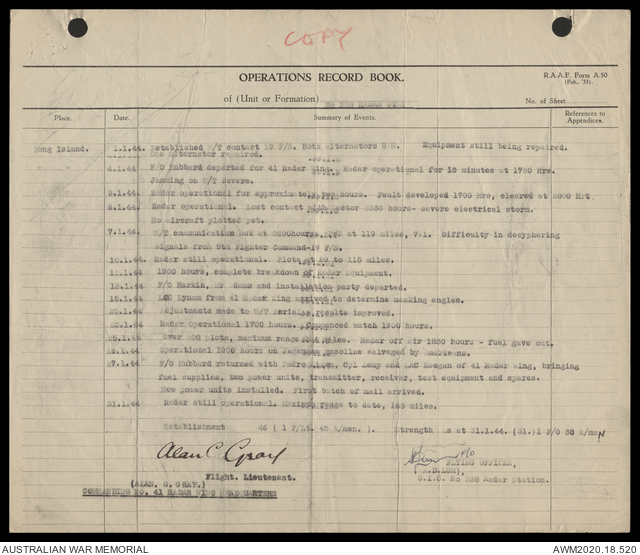 COPY
OPERATIONS RECORD BOOK.
R.A.A.F. Form A.50
(Feb., '33).
of (Unit or Formation) No 338 RADAR
No. of Sheet
Place. Date. Summary of Events. References to
Appendices.
Long Island. 1.1.44. Established W/T contact 19 F/S. Both alternators U/S. Equipment still being repaired.
One alternator repaired.
4.1.44. F/O Hubbard departed for 41 Radar Wing. Radar operational for 10 minutes at 1700 Hrs.
Jamming on W/T severe.
Radar operational for approximately two hours. Fault developed 1700 Hrs, cleared at 2000 Hrs.
Radar operational. Lost contact with sector 2330 hours- severe electrical storm.
No aircraft plotted yet.
7.1.44. W/T communication out at hours. at 119 miles, Difficulty in decyphering
signals from 5th Fighter Command-19 F/S.
10.1.44 Radar still operational. Plots at to 115 miles.
12.1.44 1900 hours, complete breakdown of Radar Equipment.
13.1.44 F/O Harkin, Mr and installation party departed.
15.1.44 LAC Lynam from 41 Radar Wing arrived to determine masking angles.
20.1.44 Adjustments made to W/T Aerials, results improved.
22.1.44 Radar Operational 1700 hours. Commenced watch 1900 hours.
25.1.44 Over plots, maximum range miles. Radar off air 1830 hours - fuel gave out.
26.1.44 Operational 1900 hours on Japanese gasoline salvaged by Americans.
27.1.44 F/O Hubbard returned with Padre Cpl Kemp and LAC Keegan of 41 Radar wing, bringing
fuel supplies, two power units, transmitter, receiver, test equipment and spares.
New power units installed. First batch of mail arrived.
31.1.44 Radar still operational. Maximum range to date, 165 miles.
Establishment 46 ( 1 F/Lt. 45 A/men. ). Strength as at 31.1.44. (31.)1 F/O 30 A/meN
Alan C. Gray F/O
Flight. Lieutenant. FLYING OFFICER,
(ALAN. C. GRAY.)
COMMANDING NO. 41 RADAR WING HEADQUARTERS O.I.C. No 338 Radar Station.
AUSTRALIAN WAR MEMORIAL AWM2020.18.520